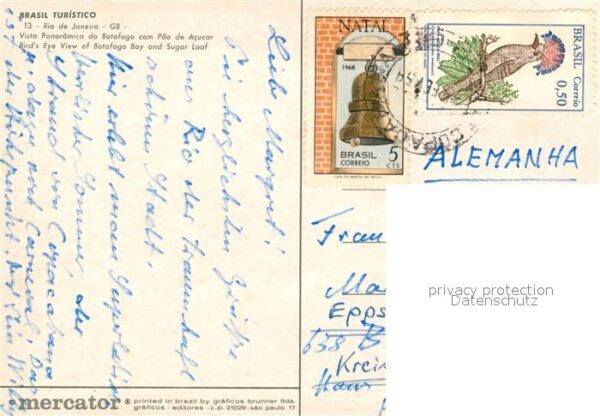 BRASIL TURÍSTICO
13 - Rio de Janeiro - GB -
Vista Panorâmica do Botafogo com Pão de Açucar
Bird's Eye View of Botafogo Bay and Sugar Loaf
Liebe Margret!
Die herzlichsten Grüße
aus Rio der traumhaft
schönen Stadt.
Hier erlebt man Superlative
herrlicher Sommer, der
Strand von Copacabana
u. dazu noch Carneval! Das
ist der Höhepunkt.
mercator
printed in brazil by gráficos brunner ltda.
gráficos - editores - c.p. 21029 - são paulo 17
NATAL
1968
BRASIL
CORREIO
5
CTS
CASA DA MOEDA DO BRASIL
BRASIL Correio
0,50
ALEMANHA
Frau
Ma
Epps
638 B
Kreis
privacy protection
Datenschutz